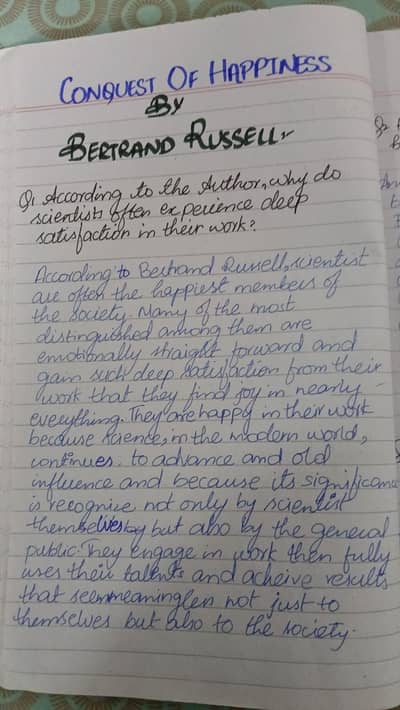 CONQUEST OF HAPPINESS
By
BERTRAND RUSSELL
Q1 According to the Author, why do
scientists often experience deep
satisfaction in their work?
According to Bertrand Russell, scientist
are often the happiest members of
the society. Many of the most
distinguished among them are
emotionally straight forward and
gain such deep satisfaction from their
work that they find joy in nearly
everything. They are happy in their work
because science, in the modern world,
continues to advance and old
influence and because its significance
is recognize not only by scientist
themselves by but also by the general
public. They engage in work then fully
uses their talents and acheive results
that seem meaninglen not just to
themselves but also to the society.